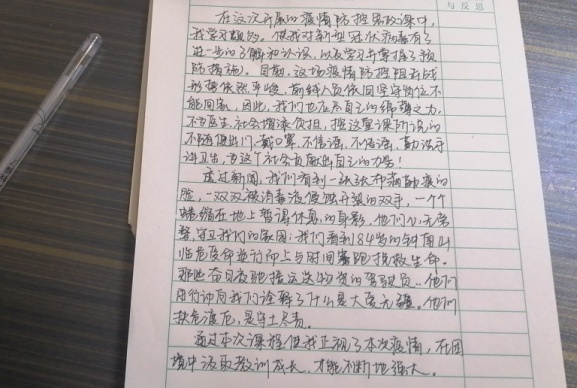 与反思
在这次开展的疫情防控思政课中,
我学习颇多。使我对新型冠状病毒有了
进一步的了解和认识,以及学习与掌握了预
防措施。目前,这场疫情防控阻击战
形势依然严峻,前线人员依旧坚守岗位不
能回家,因此,我们也应尽自己的绵薄之力,
不为医生、社会增添负担,按这堂课所说的
不随便出门、戴口罩、不信谣、不传谣、勤洗手
讲卫生,为这个社会贡献出自己的力量!
透过新闻,我们看到一张张布满勒痕的
脸,一双双被消毒液侵蚀开裂的双手,一个个
蜷缩在地上暂得休息的身影,他们分无常
努,守卫我们的家园;我们看到84岁的钟南山
临危受命逆行而上与时间赛跑挽救生命。
那些奋日夜驰接运送物资的驾驶员..他们
用行动向我们诠释了什么是大爱无疆。他们
扶危渡厄,是守土尽责。
通过本次课程使我正视了本次疫情,在困
境中汲取教训成长,才能不断地强大。